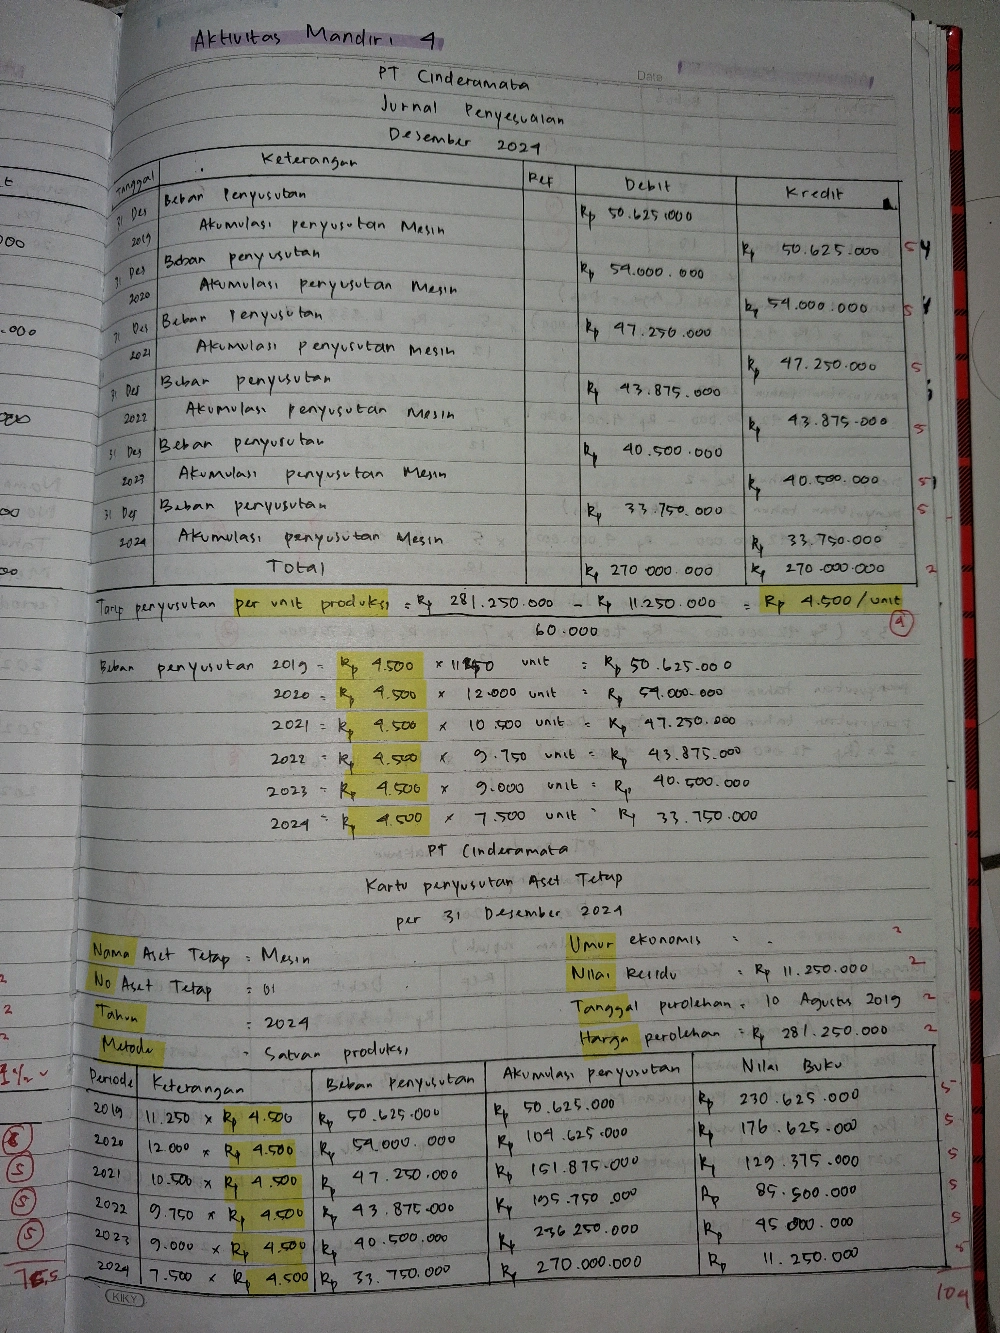 Aktivitas Mandiri 4
Date
PT Cinderamata
Jurnal Penyesuaian
Desember 2024
Tanggal Keterangan Ref Debit Kredit
31 Des 2019 Beban Penyusutan Rp 50.625.000
Akumulasi penyusutan Mesin Rp 50.625.000 5
31 Des 2020 Beban penyusutan Rp 54.000.000
Akumulasi penyusutan Mesin Rp 54.000.000 5
31 Des 2021 Beban Penyusutan Rp 47.250.000
Akumulasi penyusutan Mesin Rp 47.250.000 5
31 Des 2022 Beban penyusutan Rp 43.875.000
Akumulasi penyusutan Mesin Rp 43.875.000 5
31 Des 2023 Beban penyusutan Rp 40.500.000
Akumulasi penyusutan Mesin Rp 40.500.000 5
31 Des 2024 Beban penyusutan Rp 33.750.000 5
Akumulasi penyusutan Mesin Rp 33.750.000
Total Rp 270.000.000 Rp 270.000.000 2
Tarif penyusutan per unit produksi = Rp 281.250.000 - Rp 11.250.000 = Rp 4.500/unit
60.000
Beban penyusutan 2019 = Rp 4.500 × 11250 unit = Rp 50.625.000
2020 = Rp 4.500 × 12.000 unit = Rp 54.000.000
2021 = Rp 4.500 × 10.500 unit = Rp 47.250.000
2022 = Rp 4.500 × 9.750 unit = Rp 43.875.000
2023 = Rp 4.500 × 9.000 unit = Rp 40.500.000
2024 = Rp 4.500 × 7.500 unit = Rp 33.750.000
PT Cinderamata
Kartu penyusutan Aset Tetap
per 31 Desember 2024
Nama Aset Tetap : Mesin Umur ekonomis : - 2
No Aset Tetap : 01 Nilai Residu : Rp 11.250.000 2
Tahun : 2024 Tanggal perolehan : 10 Agustus 2019 2
Metode : Satuan produksi Harga perolehan : Rp 281.250.000 2
Periode Keterangan Beban Penyusutan Akumulasi penyusutan Nilai Buku
2019 11.250 × Rp 4.500 Rp 50.625.000 Rp 50.625.000 Rp 230.625.000 5
2020 12.000 × Rp 4.500 Rp 54.000.000 Rp 104.625.000 Rp 176.625.000 5
2021 10.500 × Rp 4.500 Rp 47.250.000 Rp 151.875.000 Rp 129.375.000 5
2022 9.750 × Rp 4.500 Rp 43.875.000 Rp 195.750.000 Rp 85.500.000 5
2023 9.000 × Rp 4.500 Rp 40.500.000 Rp 236.250.000 Rp 45.000.000 5
2024 7.500 × Rp 4.500 Rp 33.750.000 Rp 270.000.000 Rp 11.250.000 5
KIKY
104